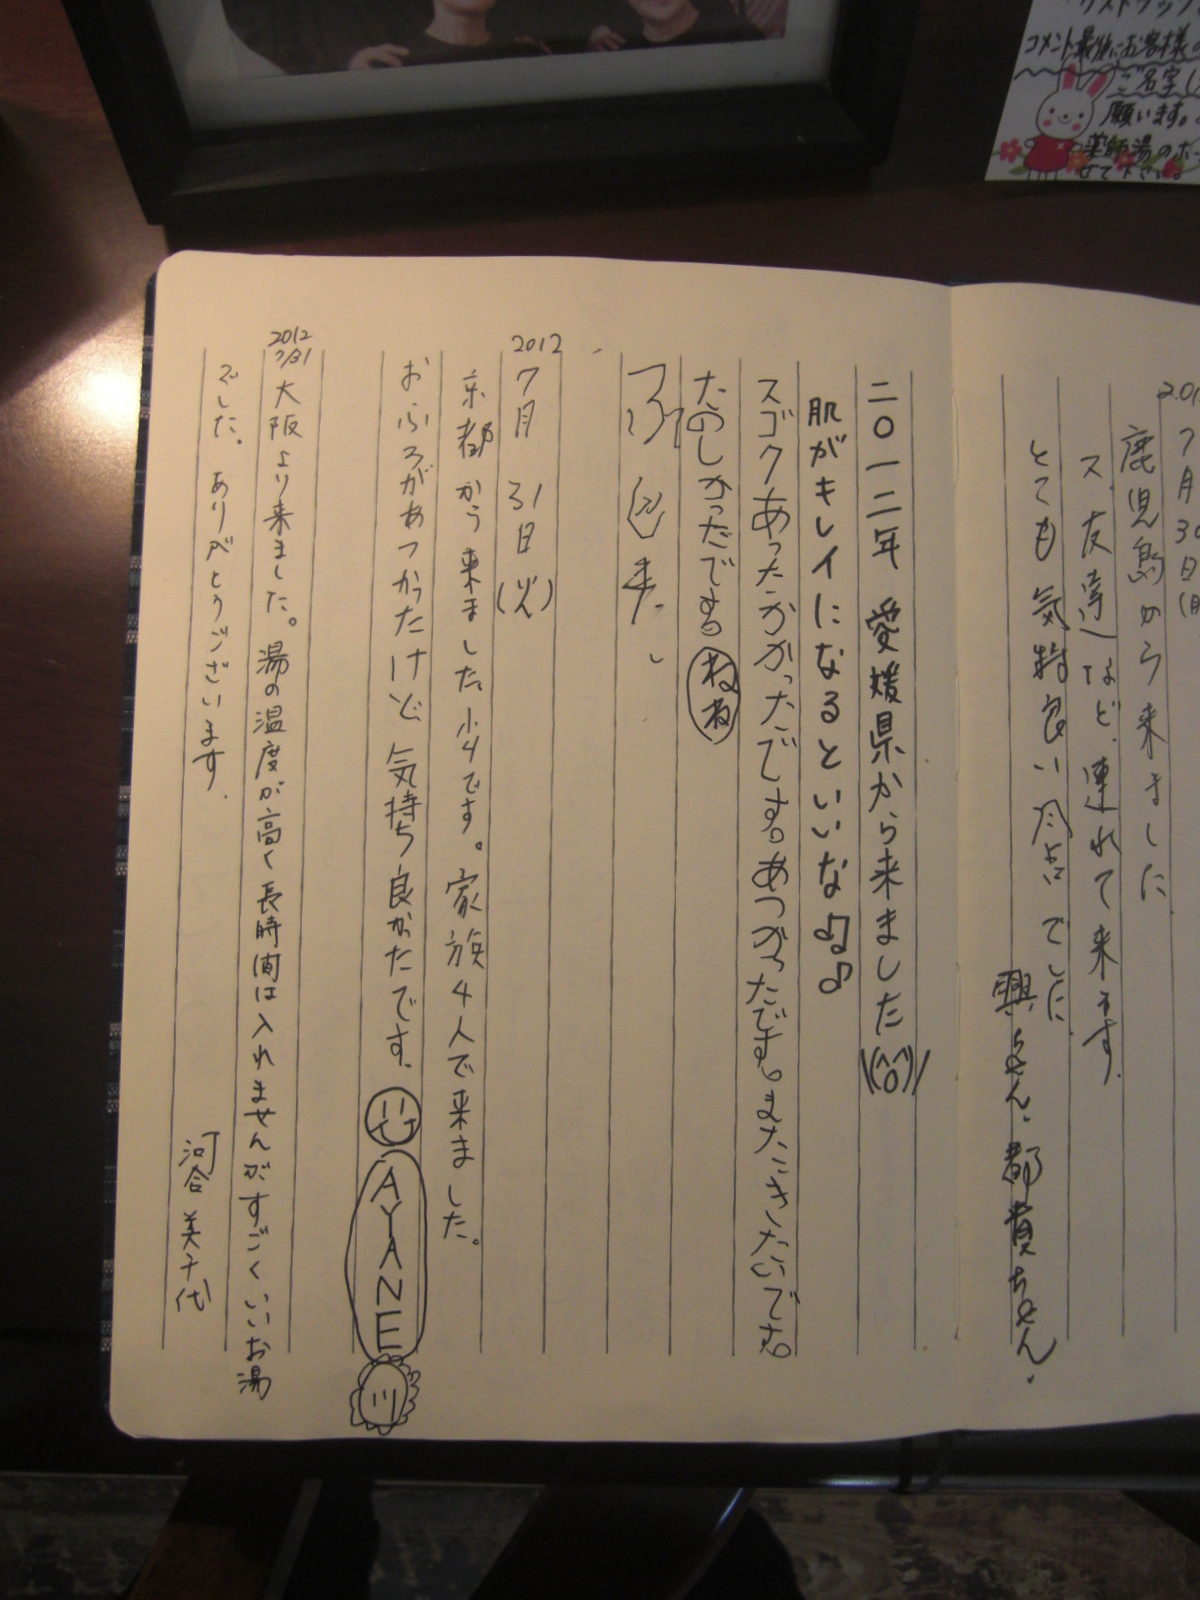 コメント最後にお客様の
ご名字
願います。
薬師湯のホー
せて下さい。
7月30日
鹿児島から来ました
ス、友達など、連れて来ます。
とても気持良い
でした
興ちゃん、
ちゃん、
二〇一二年 愛媛県から来ました\(^o^)/
肌がキレイになるといいな♫♪
スゴクあったかかったです。あつかったです。またきたいです。
たのしかったです。ねね
2012
7月31日(火)
京都から来ました。小4です。家族4人で来ました。
おふろがあつかったけど気持ち良かたです。
AYANE
2012
7/31
大阪より来ました。湯の温度が高く長時間は入れませんがすごくいいお湯
でした。ありがとうございます。
河合美千代